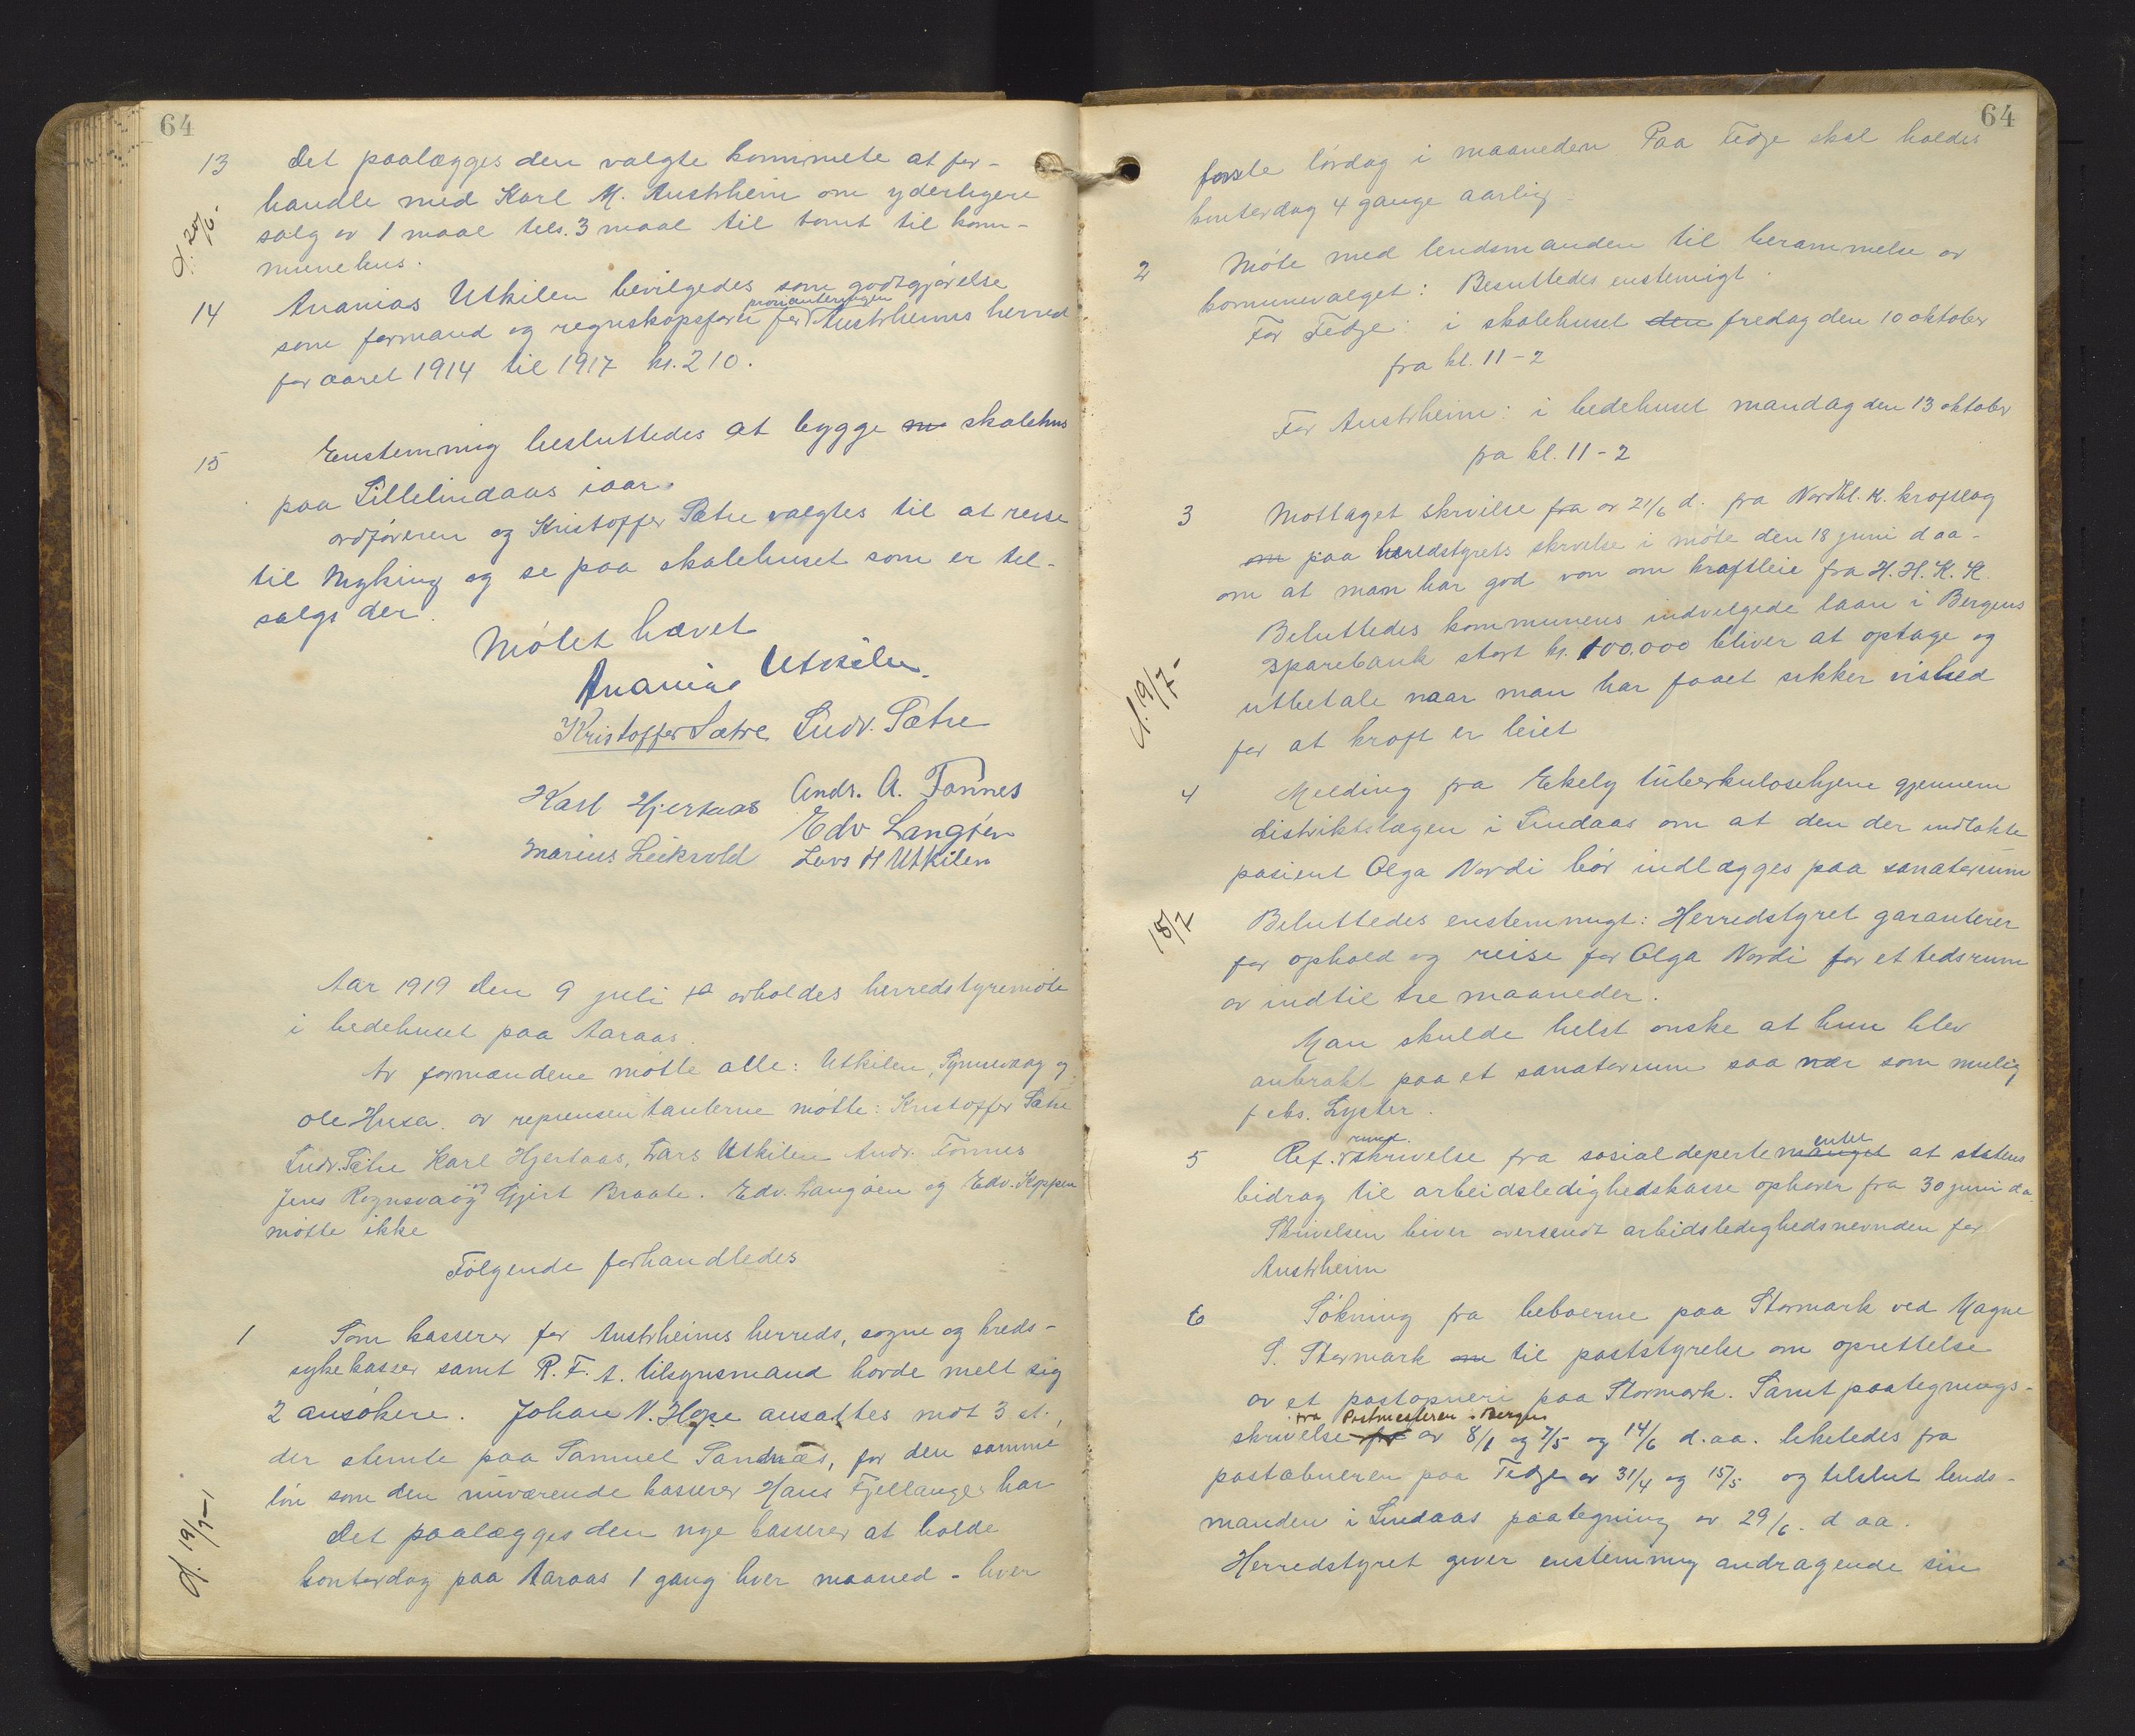 64
13 Det paalægges den valgte kommete at for-
handle med Karl M. Austrheim om yderligere
salg av 1 maal til 3 maal til tomt til kom-
munehus.
14 Ananias Utkilen bevilgedes som godtgjørelse
som formand og regnskapsfører for provianteringen Austrheims herred
for aaret 1914 til 1917 kr. 210.
15 Enstemmig besluttedes at bygge skolehus
paa Lillelindaas iaar.
ordføreren og Kristoffer Sætre valgtes til at reise
til Myking og se paa skolehuset som er til-
salgs der.
Møtet hævet
Ananias Utkilen
Kristoffer Sætre Ludv. Sætre
Karl Hjertaas Andr. A. Fonnes
Edv Langøen
Marius Leikvold Lars H Utkilen
Aar 1919 den 9 juli avholdes herredstyremøte
i bedehuset paa Aaraas.
Av formændene møtte alle: Utkilen, Synnevaag og
Ole Husa. av reprensentanterne møtte: Kristoffer Sætre
Ludv. Sætre Karl Hjertaas, Lars Utkilen Andr. Fonnes
Jens Rognsvaag og Gjert Braate. Edv. Langøen og Edv. Koppen
møtte ikke
Følgende forhandledes
1 Som kasserer for Austrheims herreds, sogne og kreds-
sykekasser samt R.F.A. tilsynsmand havde melt sig
2 ansøkere. Johan N. Hope ansattes mot 3 st.,
der stemte paa Samuel Sandnæs, for den samme
løn som den nuværende kasserer Hans Fjellanger har
Det paalægges den nye kasserer at holde
kontordag paa Aaraas 1 gang hver maaned - hver
d. 19/7-
64
første lørdag i maaneden Paa Fedje skal holdes
kontordag 4 gange aarlig.
2 Møte med lendsmanden til berammelse av
kommunevalget: Besluttedes enstemigt.
For Fedje: i skolehuset den fredag den 10 oktober
fra kl. 11-2
For Austrheim: i bedehuset mandag den 13 oktober
fra kl. 11-2
3 Mottaget skrivelse fra av 21/6 d. fra Nordhl. K. kraftlag
om paa heredstyrets skrivelse i møte den 18 juni d aa-
om at man har god von om kraftleie fra H.H.K.K
Beluttedes kommunens indvilgede laan i Bergens
Sparebank stort kr. 100.000 bliver at optage og
utbetale naar man har faaet sikker vished
for at kraft er leiet
d. 19/7-
4 Melding fra Ekely tuberkulosehjem gjennem
distriktslægen i Lindaas om at den der indlakte
pasient Olga Nordi bør indlægges paa sanatorium
Beluttedes enstemmigt: Herredstyret garanterer
for ophold og reise for Olga Nordi for et tedsrum
av indtil tre maaneder.
18/7
Man skulde helst ønske at hun blev
anbrakt paa et sanatorium saa nær som mulig
f eks. Lyster.
5 Ref. rundskrivelse fra sosialdepartementet at statens
bidrag til arbeidsledighedskasse ophører fra 30 juni d a
Skrivelsen biver oversendt arbeidsledighedsnevnden for
Austrheim
6 Søkning fra beboerne paa Stormark ved Magne
S. Stormark om til poststyrelse om oprettelse
av et postapneri paa Stormark. Samt paategnings-
skrivelse fra Postmesteren i Bergen av 8/1 og 7/5 og 14/6 d.aa. likeledes fra
postabneren paa Fedje av 31/4 og 15/5 og tilslut lends-
manden i Lindaas paategning av 29/6. d aa.
Herredstyret giver enstemmig andragende sin